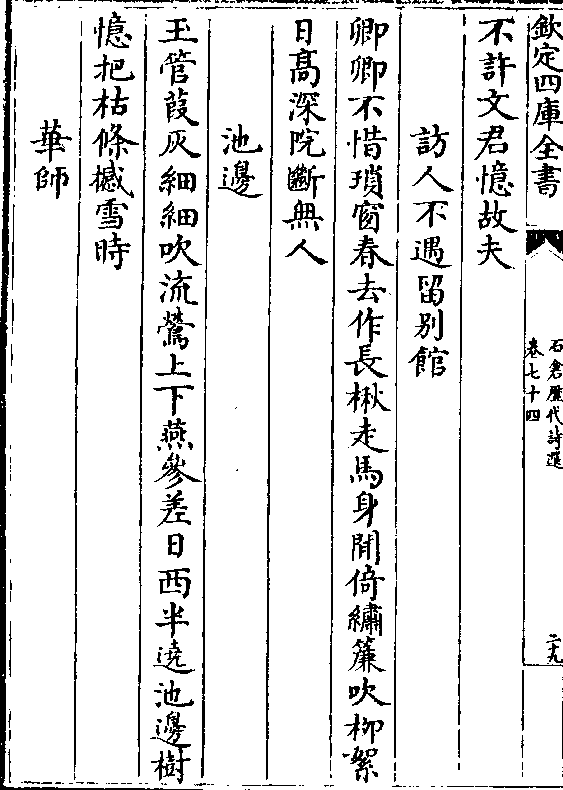 欽定四庫全書
石倉歷代詩選
卷七十四
二九
不許文君憶故夫
訪人不遇留别館
卿卿不惜瑣窗春去作長楸走馬身閒倚繡簾吹柳絮
日髙深院斷無人
池邊
玉管葭灰細細吹流鶯上下燕參差日西半遶池邊樹
憶把枯條撼雪時
華師